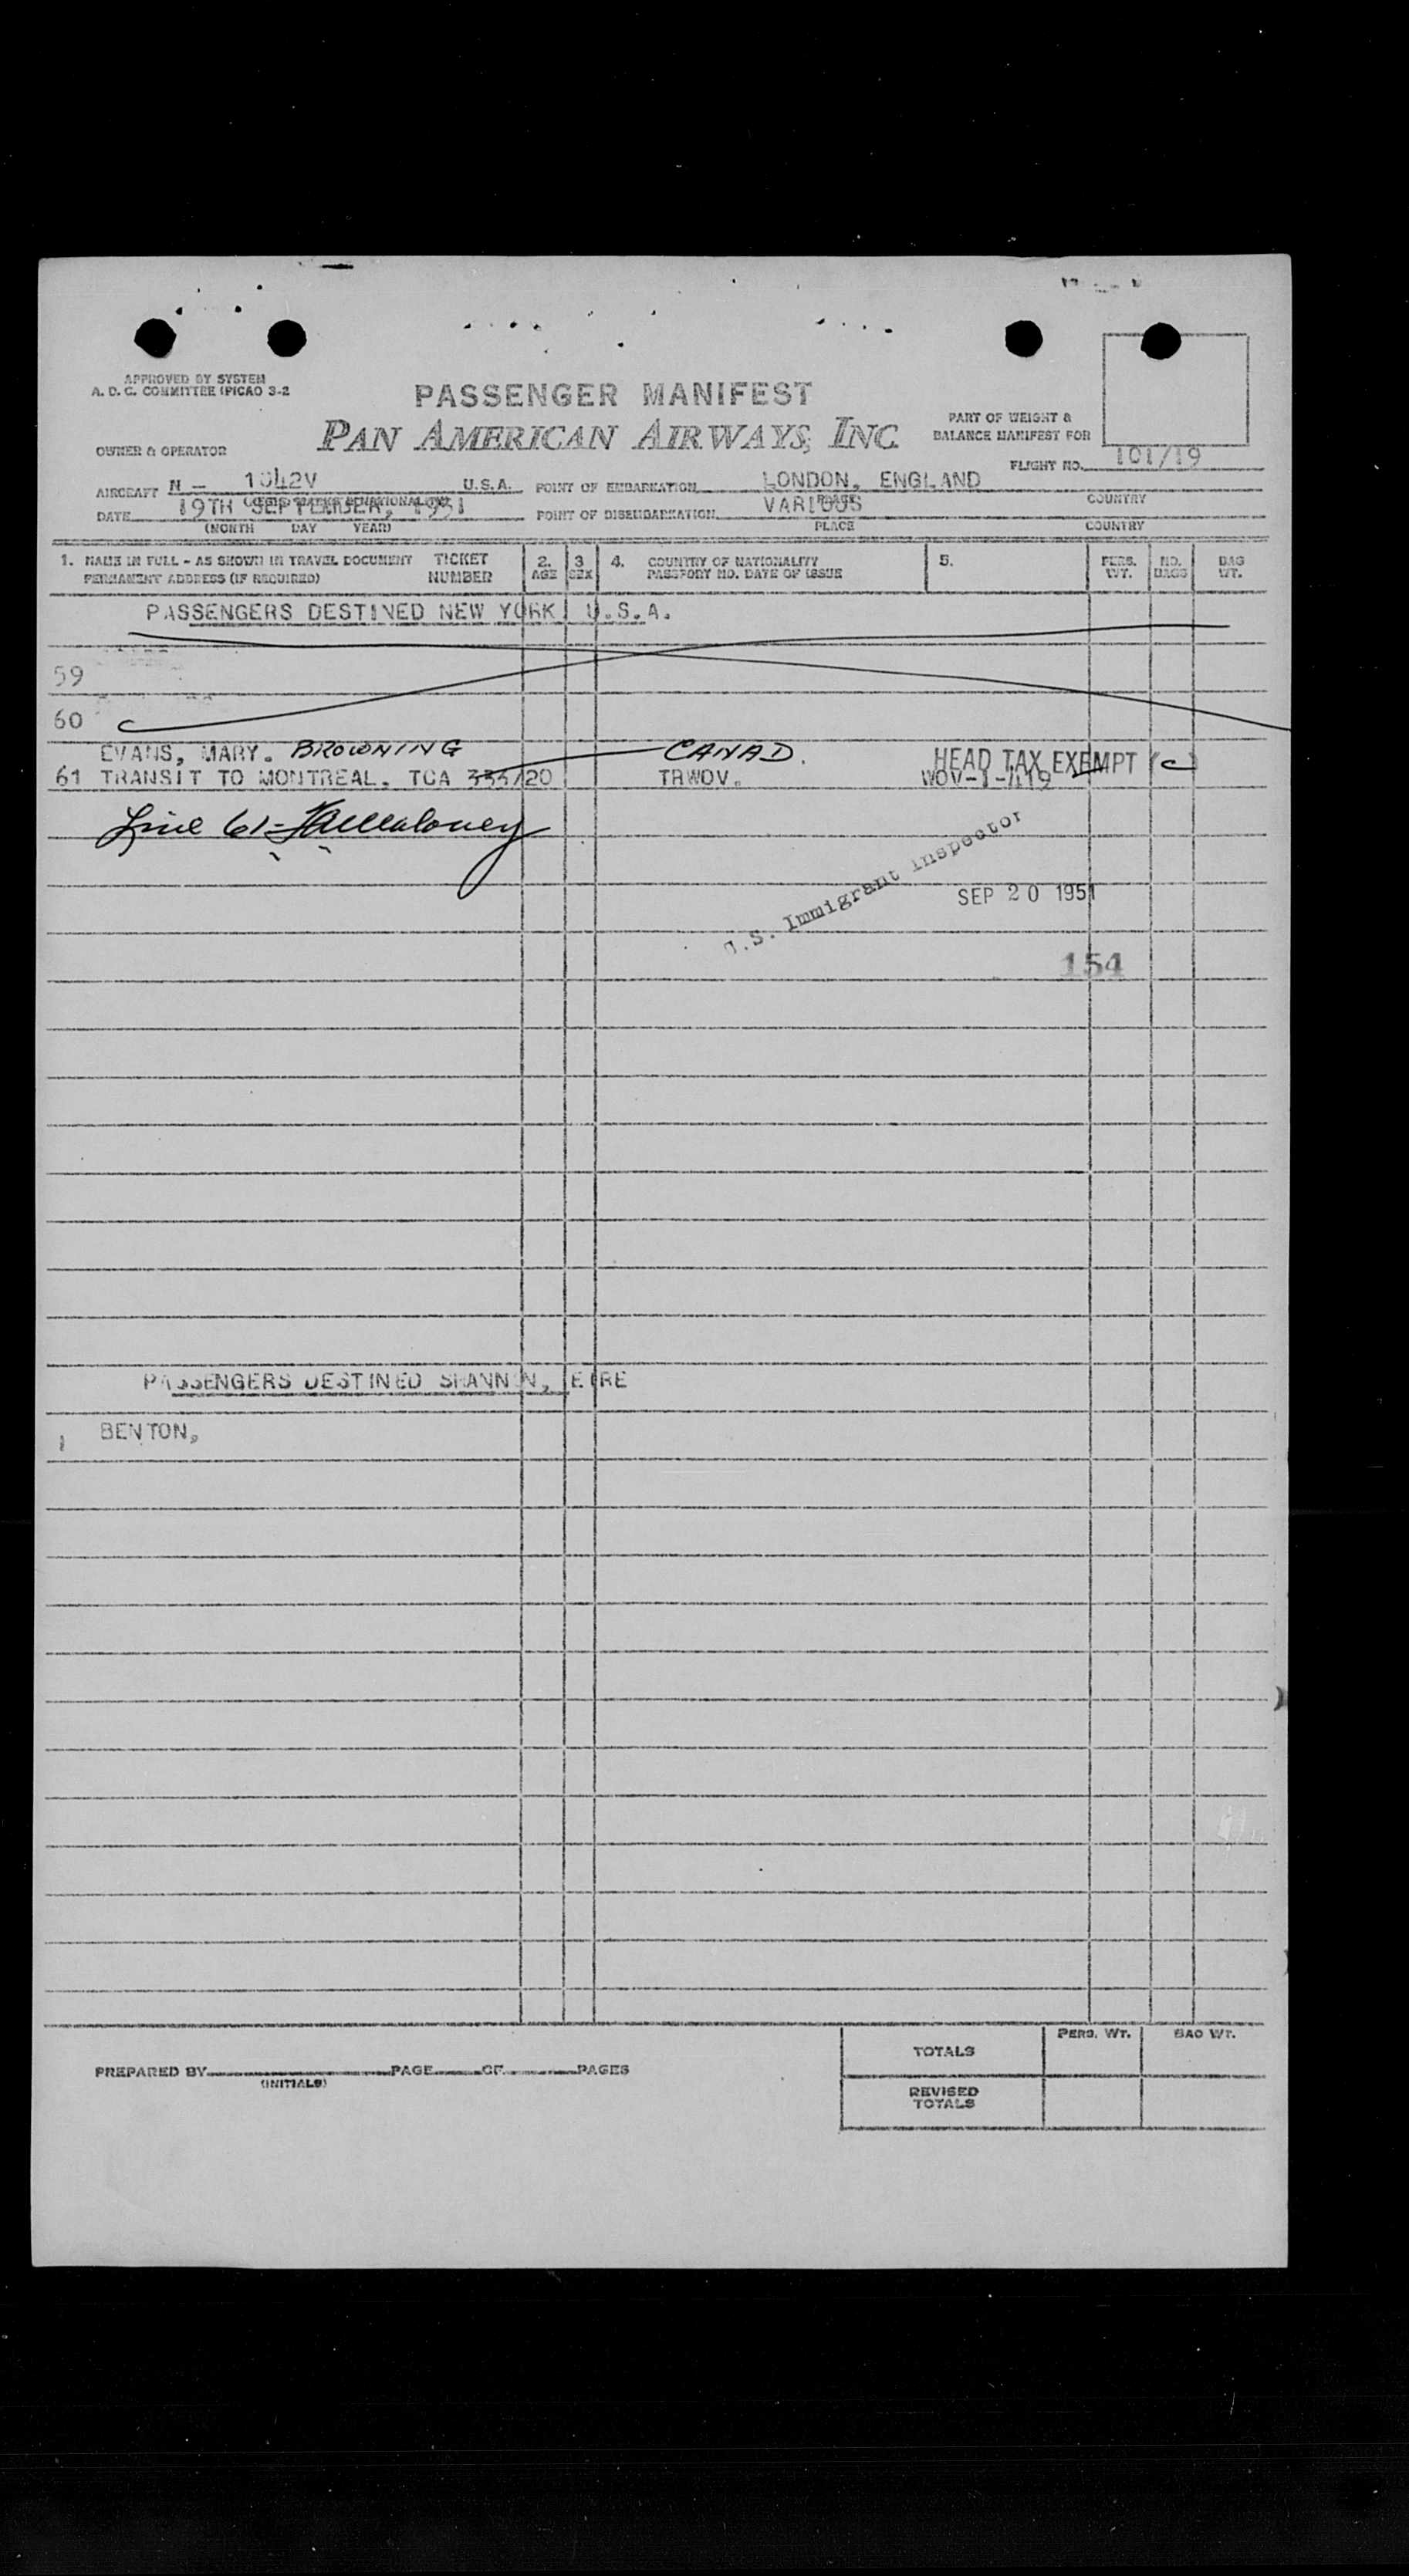 APPROVED BY SYSTEM
A. D. C. COMMITTEE (PICAO 3-2
PASSENGER MANIFEST
PAN AMERICAN AIRWAYS, INC
PART OF WEIGHT &
BALANCE MANIFEST FOR
OWNER & OPERATOR
FLIGHT NO. 101/19
AIRCRAFT N - 1042V U.S.A. POINT OF EMBARKATION LONDON, ENGLAND
(REGIS. MARKS & NATIONALITY) PLACE COUNTRY
DATE 19TH SEPTEMBER, 1951 POINT OF DISEMBARKATION VARIOUS
(MONTH DAY YEAR) PLACE COUNTRY
1. NAME IN FULL - AS SHOWN IN TRAVEL DOCUMENT TICKET 2. 3 4. COUNTRY OF NATIONALITY 5. PERS. NO. BAG
PERMANENT ADDRESS (IF REQUIRED) NUMBER AGE SEX PASSPORT NO. DATE OF ISSUE WT. BAGS WT.
PASSENGERS DESTINED NEW YORK, U.S.A.
59
60
EVANS, MARY. BROWNING CANAD. HEAD TAX EXEMPT (c)
61 TRANSIT TO MONTREAL. TCA 333/20 TRWOV. WOV-1-419
Line 61-
U.S. Immigrant Inspector
SEP 20 1951
154
PASSENGERS DESTINED SHANNON, EIRE
1 BENTON,
PREPARED BY PAGE OF PAGES
(INITIALS)
PERS. WT. BAG WT.
TOTALS
REVISED
TOTALS